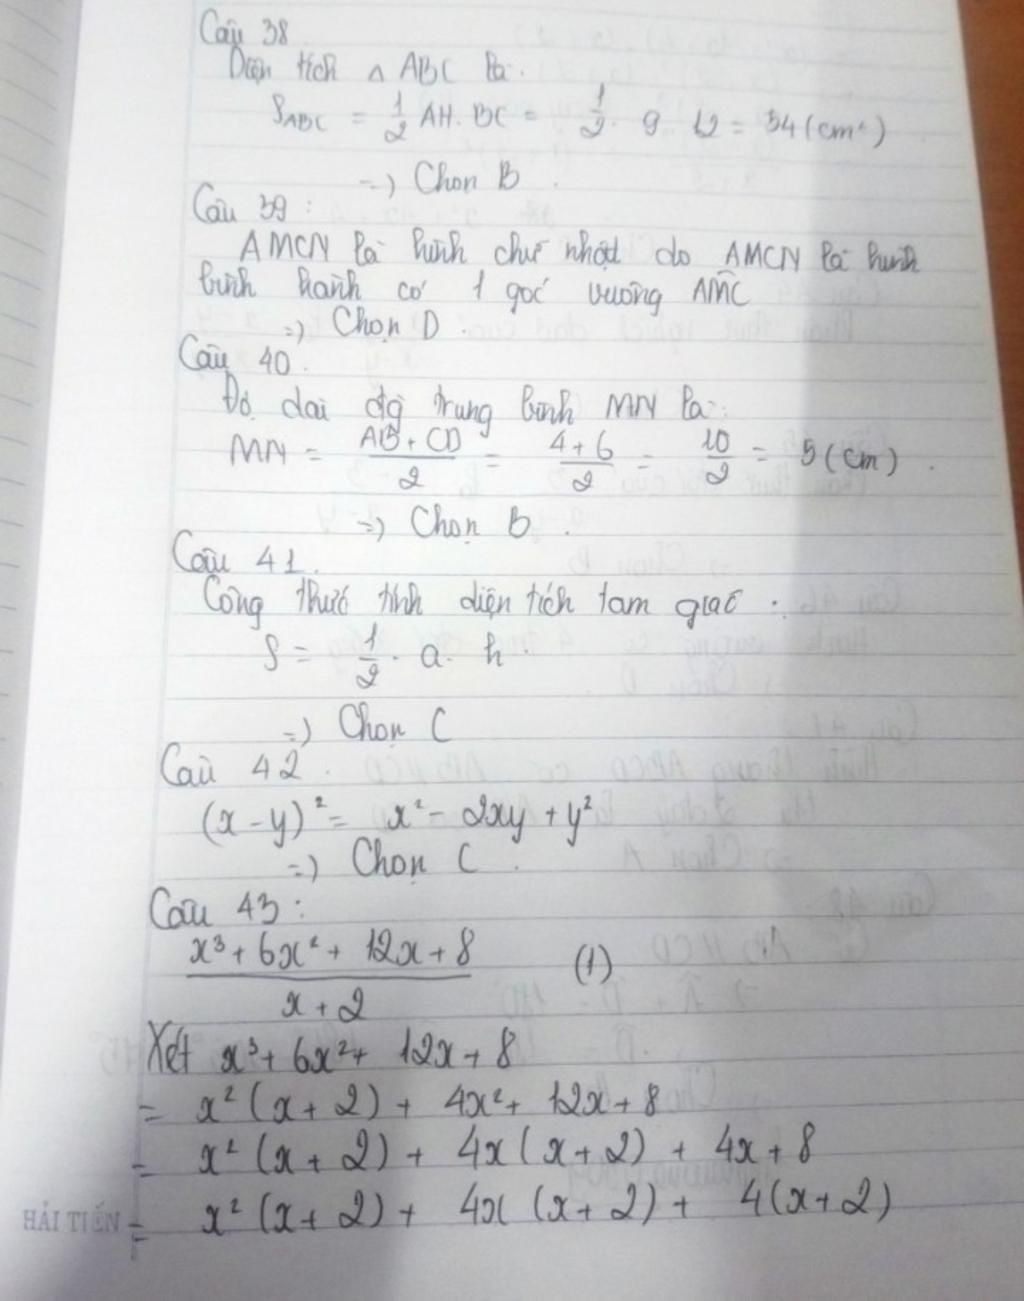 Câu 38
Diện tích △ ABC là:
S_ABC = 1/2 AH. BC = 1/2 . 9 12 = 54 (cm²)
=> Chọn B.
Câu 39:
AMCN là hình chữ nhật do AMCN là hình
bình hành có 1 góc vuông AMC
=> Chọn D.
Câu 40.
Độ dài đg trung bình MN là:
MN = (AB + CD)/2 = (4+6)/2 = 10/2 = 5 (cm).
=> Chọn B.
Câu 41.
Công thức tính diện tích tam giác:
S = 1/2 . a. h.
=> Chọn C
Câu 42.
(x - y)² = x² - 2xy + y²
=> Chọn C.
Câu 43:
(x³ + 6x² + 12x + 8)/(x + 2) (1)
Xét x³ + 6x² + 12x + 8
= x² (x + 2) + 4x² + 12x + 8
= x² (x + 2) + 4x (x + 2) + 4x + 8
HẢI TIẾN = x² (x + 2) + 4x (x + 2) + 4(x + 2)